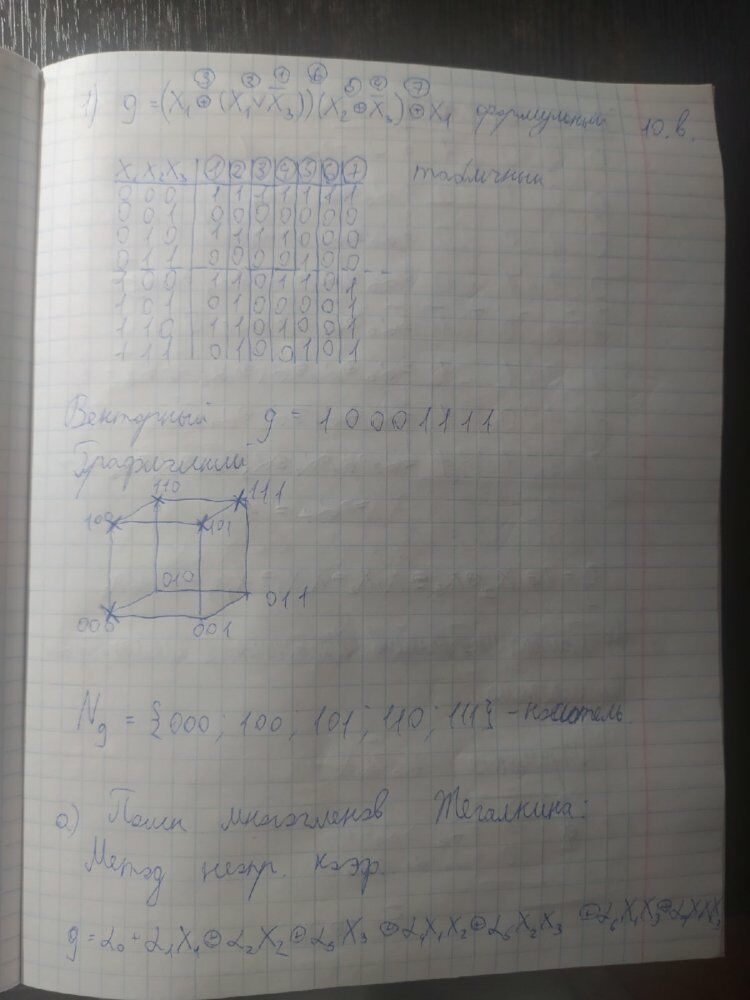 1) g = (X₁ ⊕ (X₁ ∨ X̄₃)) (X₂ ⊕ X̄₃) ⊕ X₁ формульный 10.в.
③ ② ① ⑥ ⑤ ④ ⑦
X₁ X₂ X₃ | ① | ② | ③ | ④ | ⑤ | ⑥ | ⑦ табличный
0 0 0 | 1 | 1 | 1 | 1 | 1 | 1 | 1
0 0 1 | 0 | 0 | 0 | 0 | 0 | 0 | 0
0 1 0 | 1 | 1 | 1 | 1 | 0 | 0 | 0
0 1 1 | 0 | 0 | 0 | 0 | 1 | 0 | 0
1 0 0 | 1 | 1 | 0 | 1 | 1 | 0 | 1
1 0 1 | 0 | 1 | 0 | 0 | 0 | 0 | 1
1 1 0 | 1 | 1 | 0 | 1 | 0 | 0 | 1
1 1 1 | 0 | 1 | 0 | 0 | 1 | 0 | 1
Векторный g = 1 0 0 0 1 1 1 1
Графический
110 111
100 101
010 011
000 001
N_g = {000; 100; 101; 110; 111} - носитель
а) Поиск многочленов Жегалкина:
Метод неопр. коэф.
g = α₀ + α₁X₁ ⊕ α₂X₂ ⊕ α₃X₃ ⊕ α₄X₁X₂ ⊕ α₅X₂X₃ ⊕ α₆X₁X₃ ⊕ α₇X₁X₂X₃